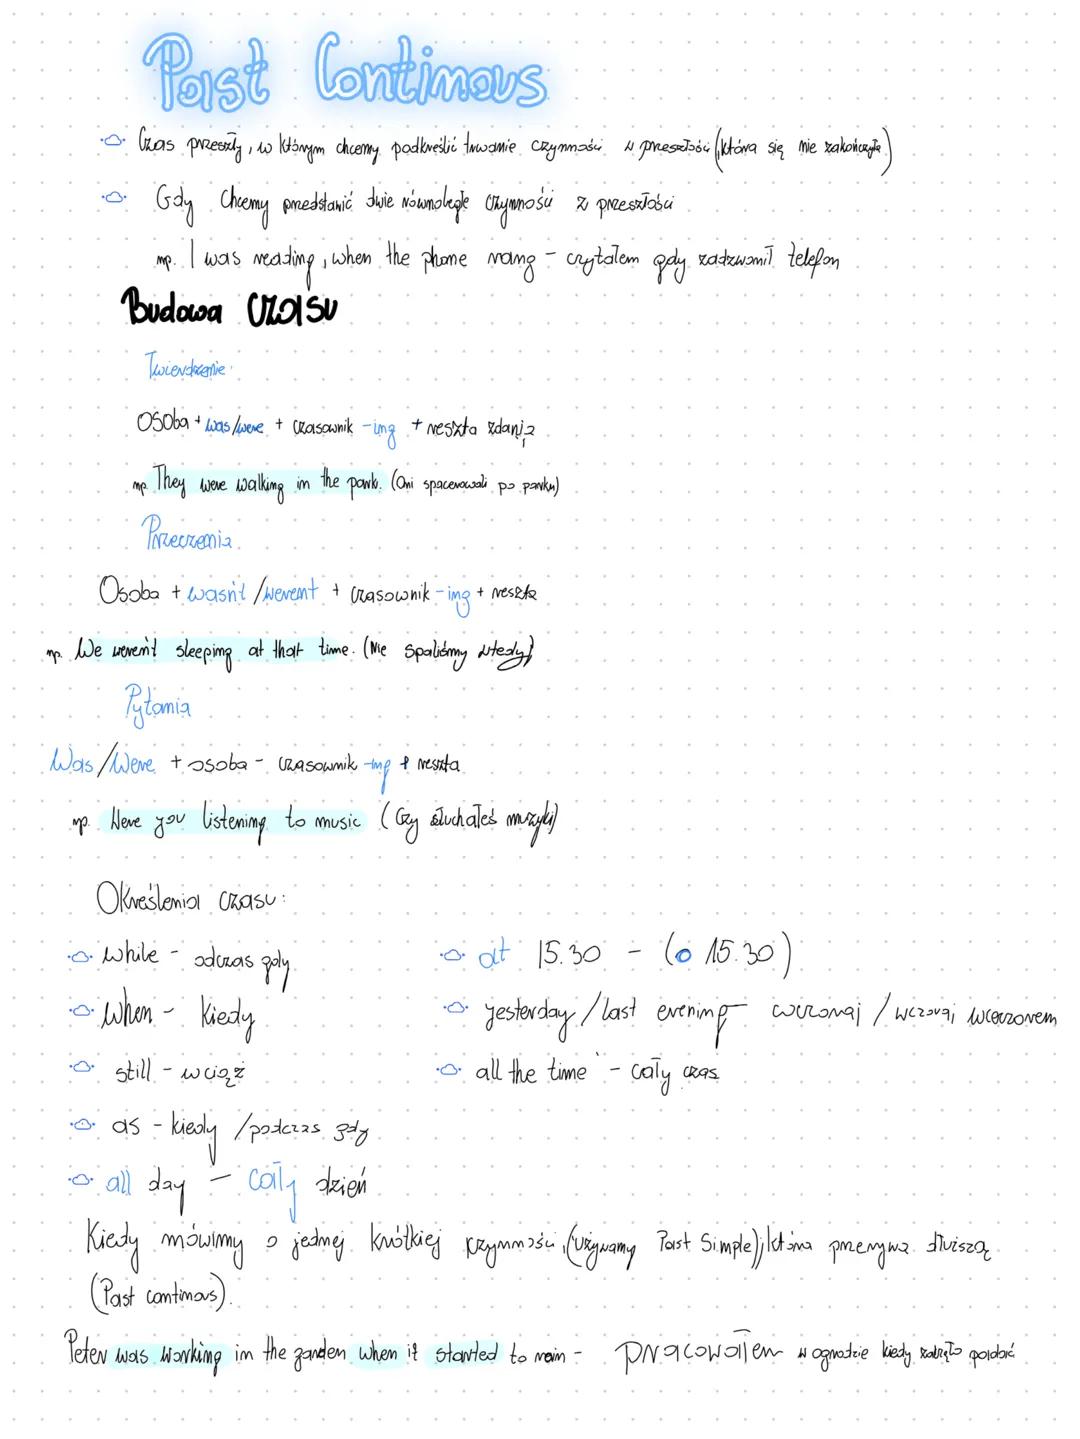 Past Continous
Czas przeszły, w którym chcemy podkreślić trwanie czynności w przeszłości (która się nie zakończyła)
Gdy Chcemy przedstawić dwie równoległe czynności z przeszłości
np. I was reading, when the phone rang - czytałem gdy zadzwonił telefon
Budowa CZASU
Twierdzenie:
OSOBA + was/were + czasownik -ing + reszta zdania
np. They were walking in the park. (Oni spacerowali po parku)
Przeczenia
Osoba + wasn't /werent + czasownik -ing + reszta
np. We weren't sleeping at that time. (Nie spaliśmy wtedy)
Pytania
Was/Were + osoba - czasownik -ing + reszta
np. Were you listening to music (Czy słuchałeś muzyki)
Określenia czasu:
while - odczas gdy
when - kiedy
still - wciąż
as - kiedy /podczas gdy
all day - cały dzień
at 15.30 - (o 15.30)
yesterday /last evening wczoraj / wczoraj wieczorem
all the time - cały czas
Kiedy mówimy o jednej krótkiej czynności, (używamy Past Simple), która przerywa dłuiszą
(Past continous).
Peter was working in the garden when it started to rain - pracowałem w ogrodzie kiedy zaczęło padać